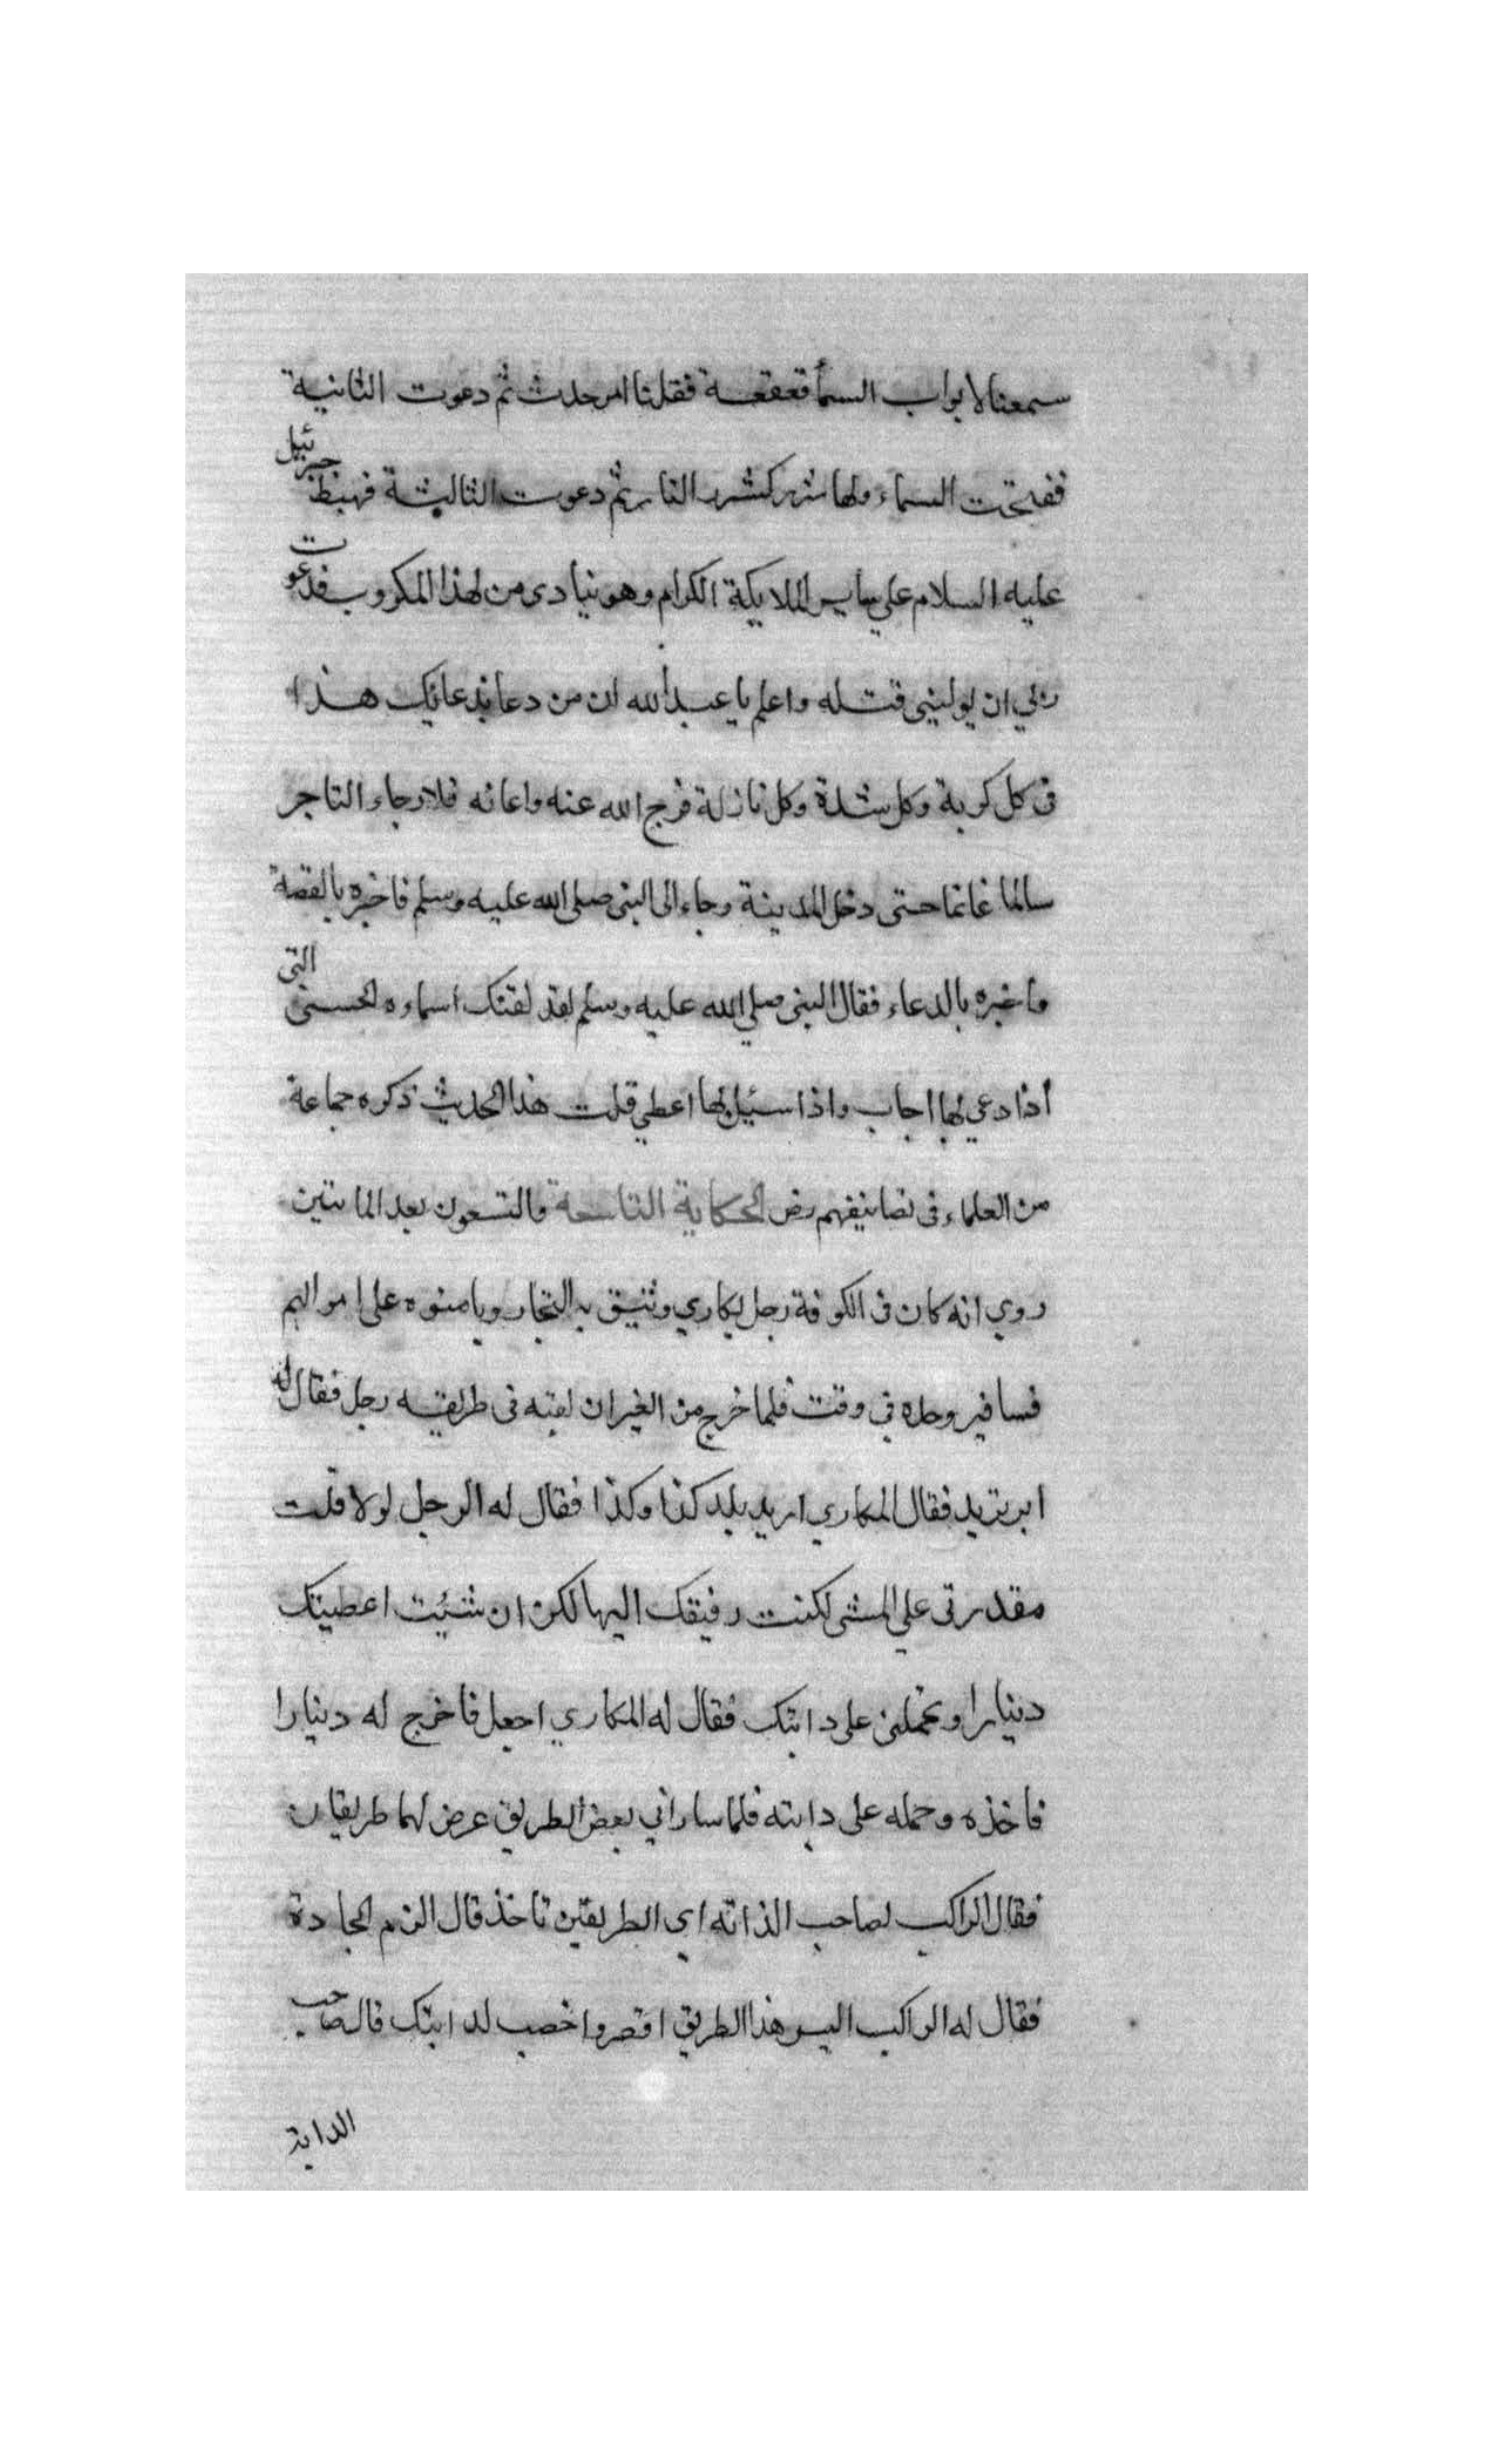 سمعنا لابواب السمأ قعقعة فقلنا امر حدث ثم دعوت الثانية
ففتحت السماء ولها شرر كشرر النار ثم دعوت الثالثة فهبط جبرئيل
عليه السلام علي ساير الملايكة الكرام وهو ينادى من لهذا المكروب فدعوت
ربي ان يولينى قتله واعلم يا عبد الله ان من دعا بدعائك هذا
فى كل كربة وكل شدة وكل نازلة فرج الله عنه واعانه فلا رجاء التاجر
سالما غانما حتى دخل المدينة وجاء الى النبى صلى الله عليه وسلم فاخبره بالقصة
واخبره بالدعاء فقال النبى صلي الله عليه وسلم لقد لقنك اسماوه الحسنى التى
اذا دعي بها اجاب واذا سئيل بها اعطي قلت هذا الحديث ذكره جماعة
من العلماء فى تصانيفهم رض الحكاية التاسعة والتسعون بعد الماتين
روي انه كان فى الكوفة رجل يكاري وتثيق به التجار ويامنوه على اموالهم
فسافير وحده في وقت فلما خرج من الغيران لقيه فى طريقه رجل فقال له
اين تريد فقال المكاري اريد بلد كذا وكذا فقال له الرجل لولا قلت
مقدرتى علي المشى لكنت رفيقك اليها لكن ان شئيت اعطيتك
دينارا وتحملنى على دابتك فقال له المكاري اجعل فاخرج له دينارا
فاخذه وحمله على دابته فلما سارا في بعض الطريق عرض لهما طريقان
فقال الراكب لصاحب الذاته اي الطريقين تاخذ قال الزم الجادة
فقال له الراكب اليس هذا الطريق اقصر واخصب لدابتك قال صاحب
الدابة